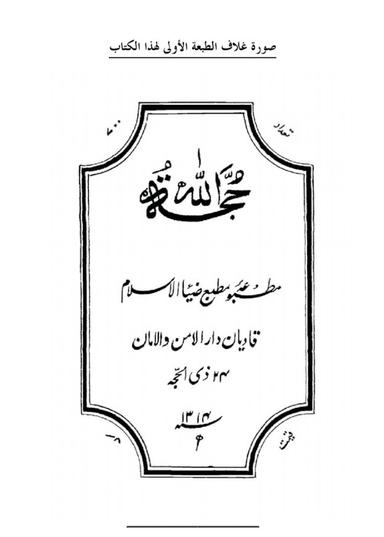 صورة غلاف الطبعة الأولى لهذا الكتاب
تعداد ٧٠٠
حُجَّةُ اللّٰه
مطبوعہ مطبع ضیاء الاسلام
قادیان دار الامن والامان
۲۴ ذی الحجّہ
سنہ ۱۳۱۴
قیمت